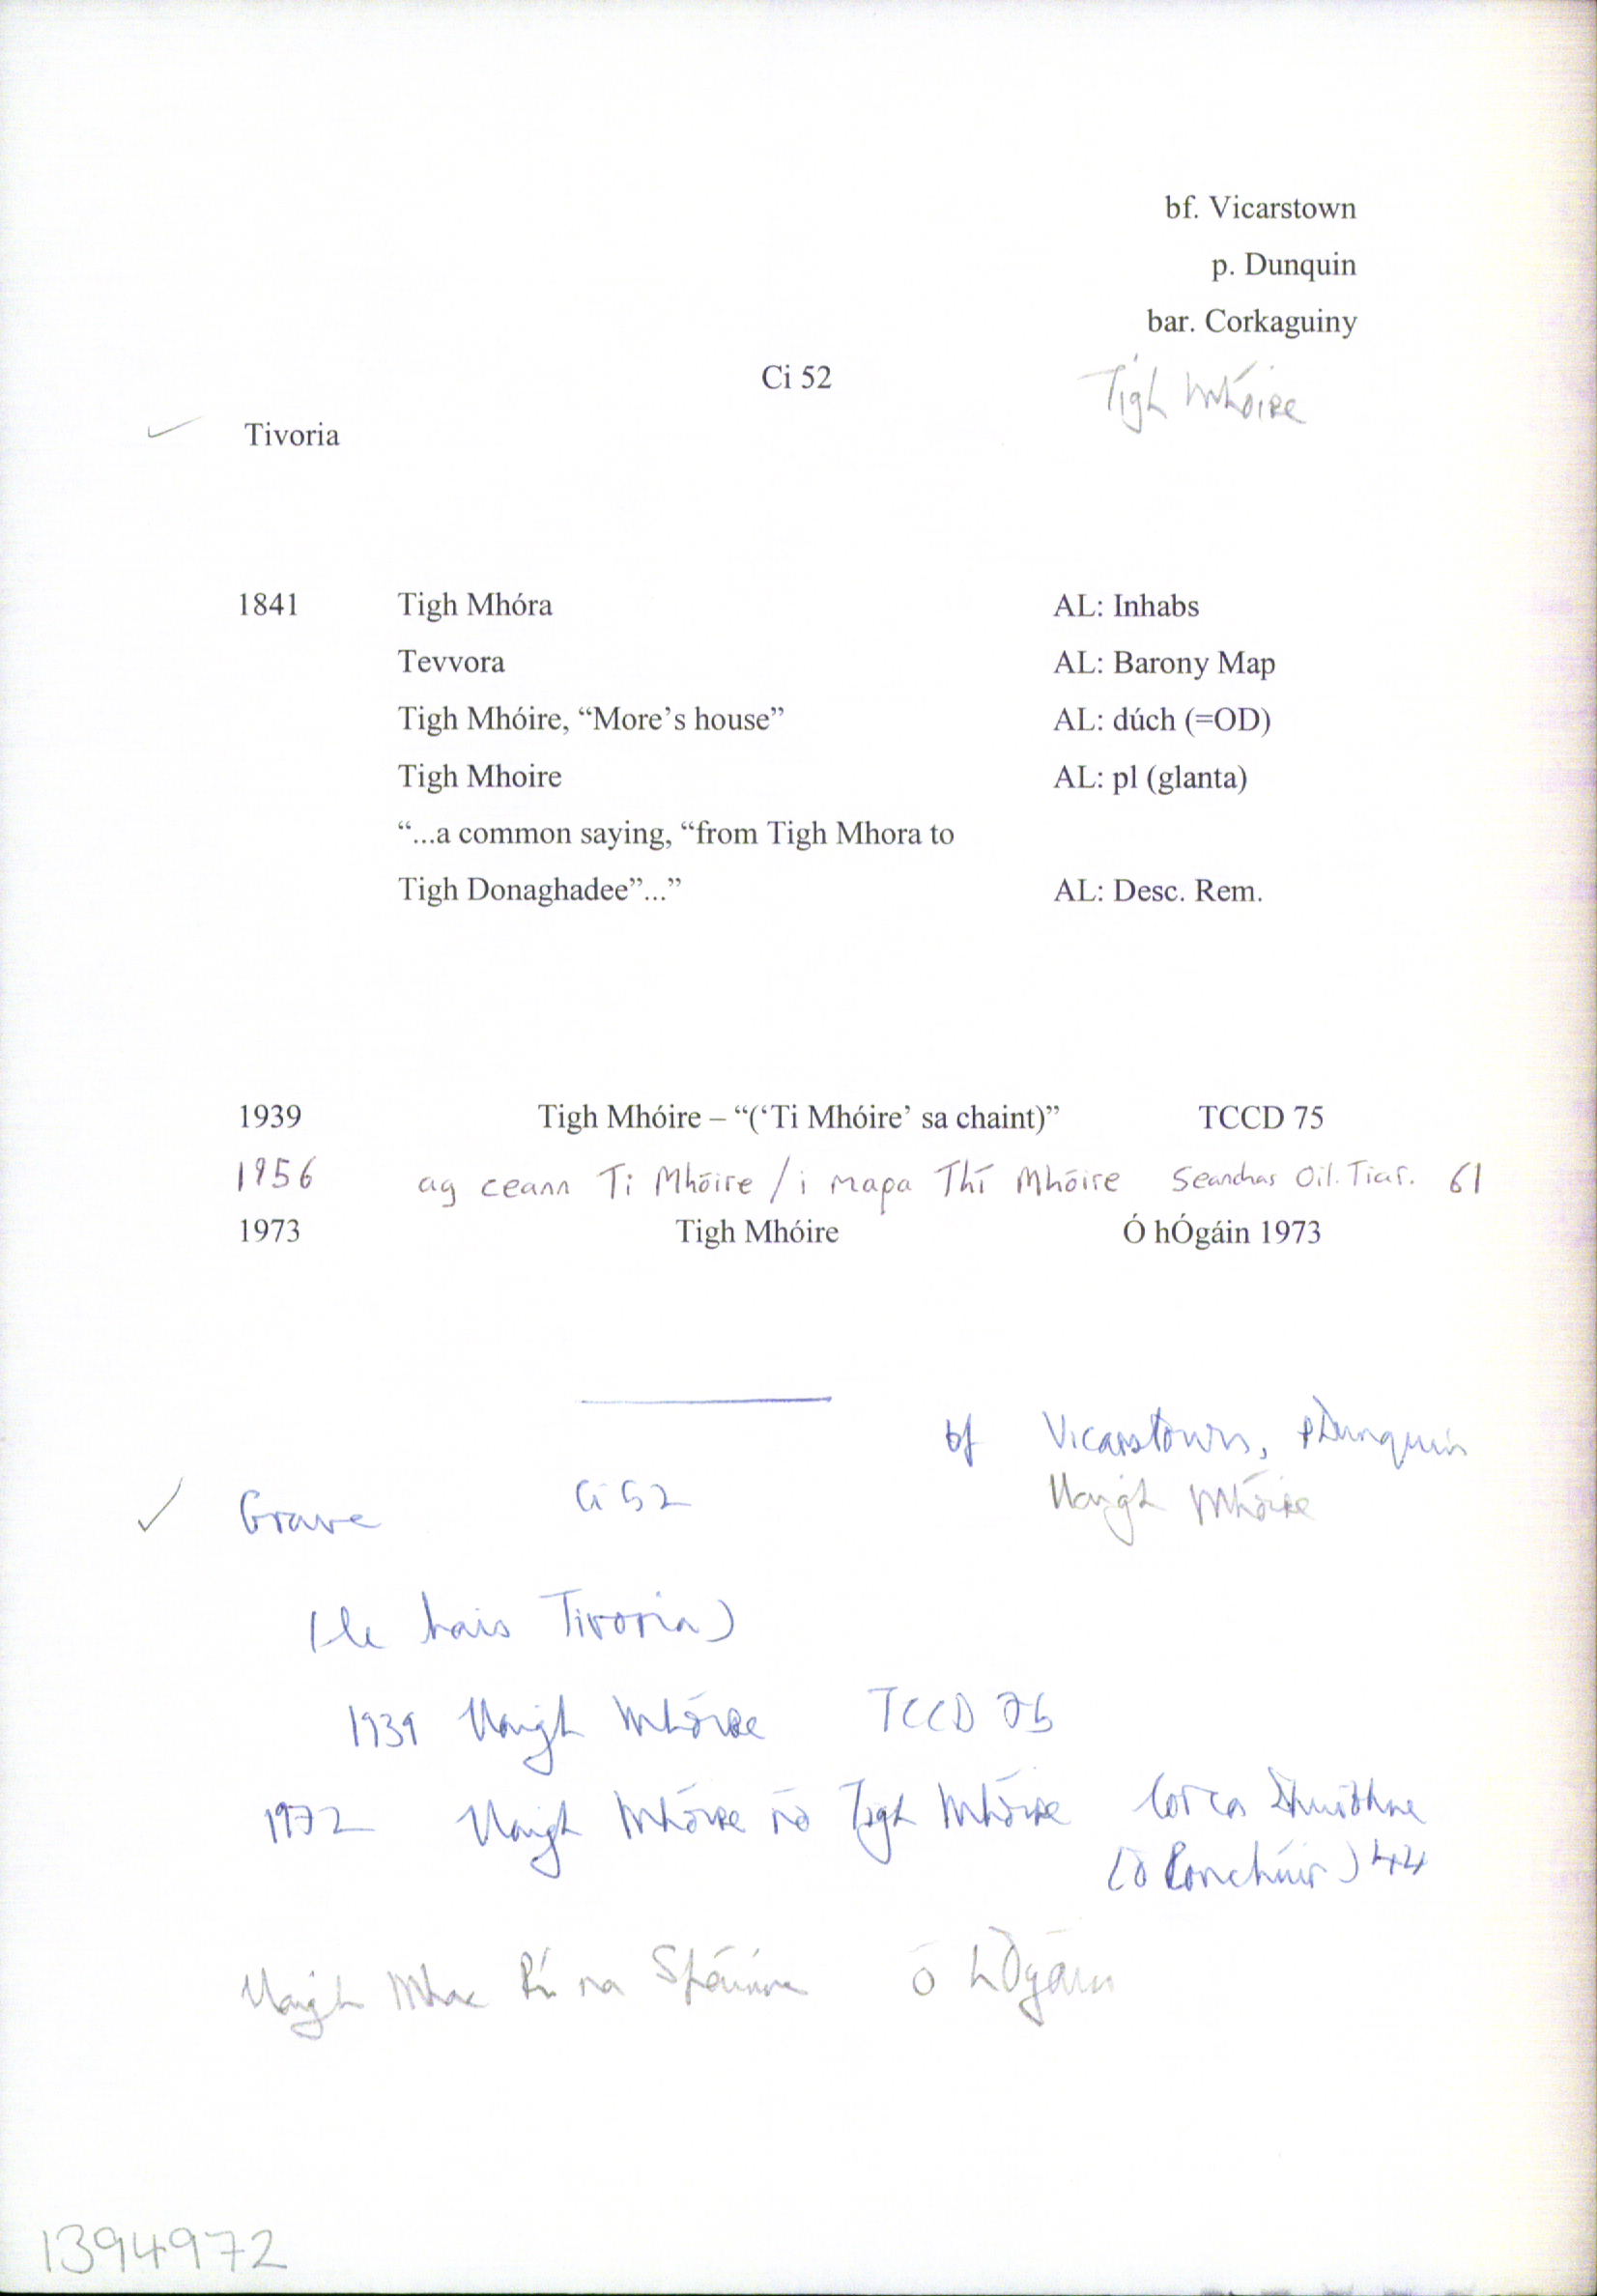 bf. Vicarstown
p. Dunquin
bar. Corkaguiny
Ci 52
Tigh Mhóire
Tivoria
1841 Tigh Mhóra AL: Inhabs
Tevvora AL: Barony Map
Tigh Mhóire, “More’s house” AL: dúch (=OD)
Tigh Mhoire AL: pl (glanta)
“...a common saying, “from Tigh Mhora to
Tigh Donaghadee”...” AL: Desc. Rem.
1939 Tigh Mhóire – “(‘Ti Mhóire’ sa chaint)” TCCD 75
1956 ag ceann Ti Mhóire / i mapa Thí Mhóire Seanchas Oil. Tiar. 61
1973 Tigh Mhóire Ó hÓgáin 1973
bf Vicarstown, p Dunquin
Grave Ci 52 Uaigh Mhóire
(le hais Tivoria)
1939 Uaigh Mhóire TCCD 75
1972 Uaigh Mhóire nó Tigh Mhóire Corca Dhuibhne
(Ó Conchúir) 44
Uaigh Mhac Rí na Spáinne Ó hÓgáin
1394972